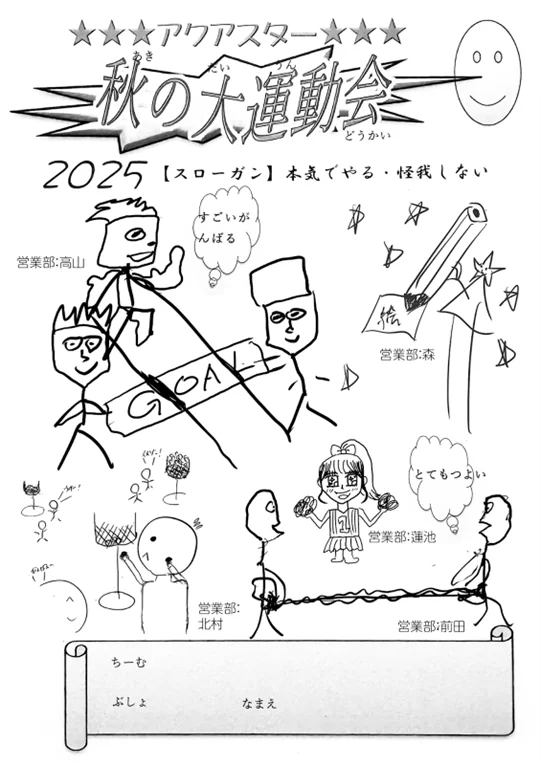 ★★★アクアスター★★★
あき たい うん
秋の大運動会
どうかい
2025【スローガン】本気でやる・怪我しない
すごいが
んばる
営業部:高山
絵
営業部:森
GOAL
とてもつよい
営業部:蓮池
営業部:
北村
営業部:前田
ちーむ
ぶしょ なまえ